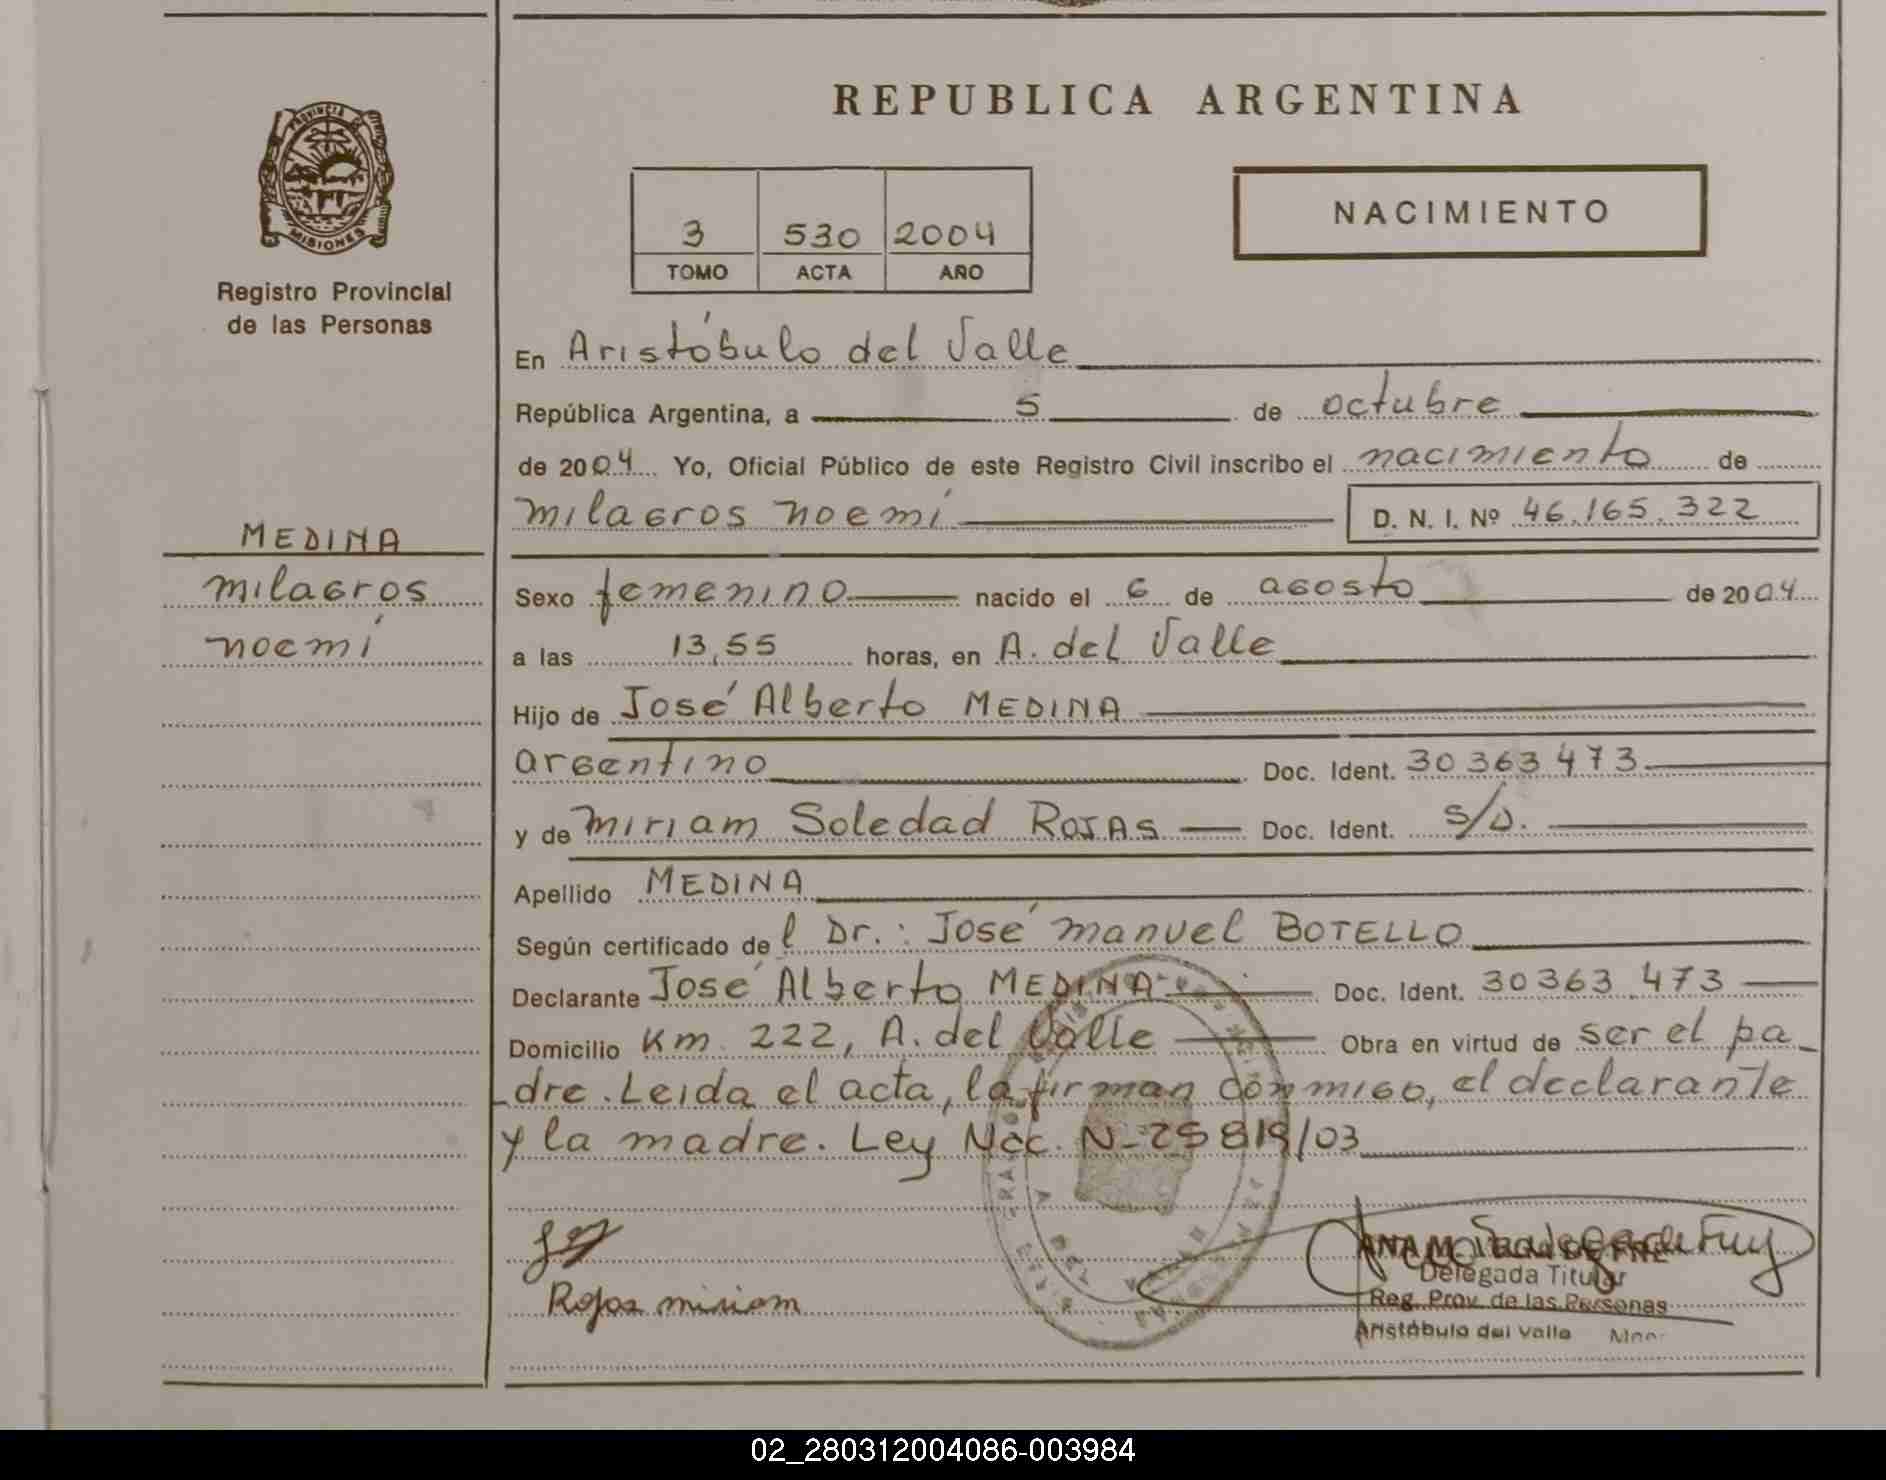 REPUBLICA ARGENTINA
PROVINCIA DE
MISIONES
Registro Provincial
de las Personas
3 530 2004
TOMO ACTA AÑO
NACIMIENTO
En Aristóbulo del Valle
República Argentina, a 5 de octubre
de 2004 Yo, Oficial Público de este Registro Civil inscribo el nacimiento de
milagros noemí D. N. I. Nº 46.165.322
MEDINA
milagros
noemí
Sexo femenino nacido el 6 de agosto de 2004
a las 13,55 horas, en A. del Valle
Hijo de José Alberto MEDINA
argentino Doc. Ident. 30363473
y de miriam Soledad ROJAS Doc. Ident. s/D.
Apellido MEDINA
Según certificado del Dr.: José manuel BOTELLO
Declarante José Alberto MEDINA Doc. Ident. 30363473
Domicilio Km 222, A. del Valle Obra en virtud de ser el pa_
_dre. Leida el acta, la firman conmigo, el declarante
y la madre. Ley Nac. N-25819/03
Rojas miriam
ANA M.
Delegada Titular
Reg. Prov. de las Personas
Aristóbulo del Valle
02_280312004086-003984